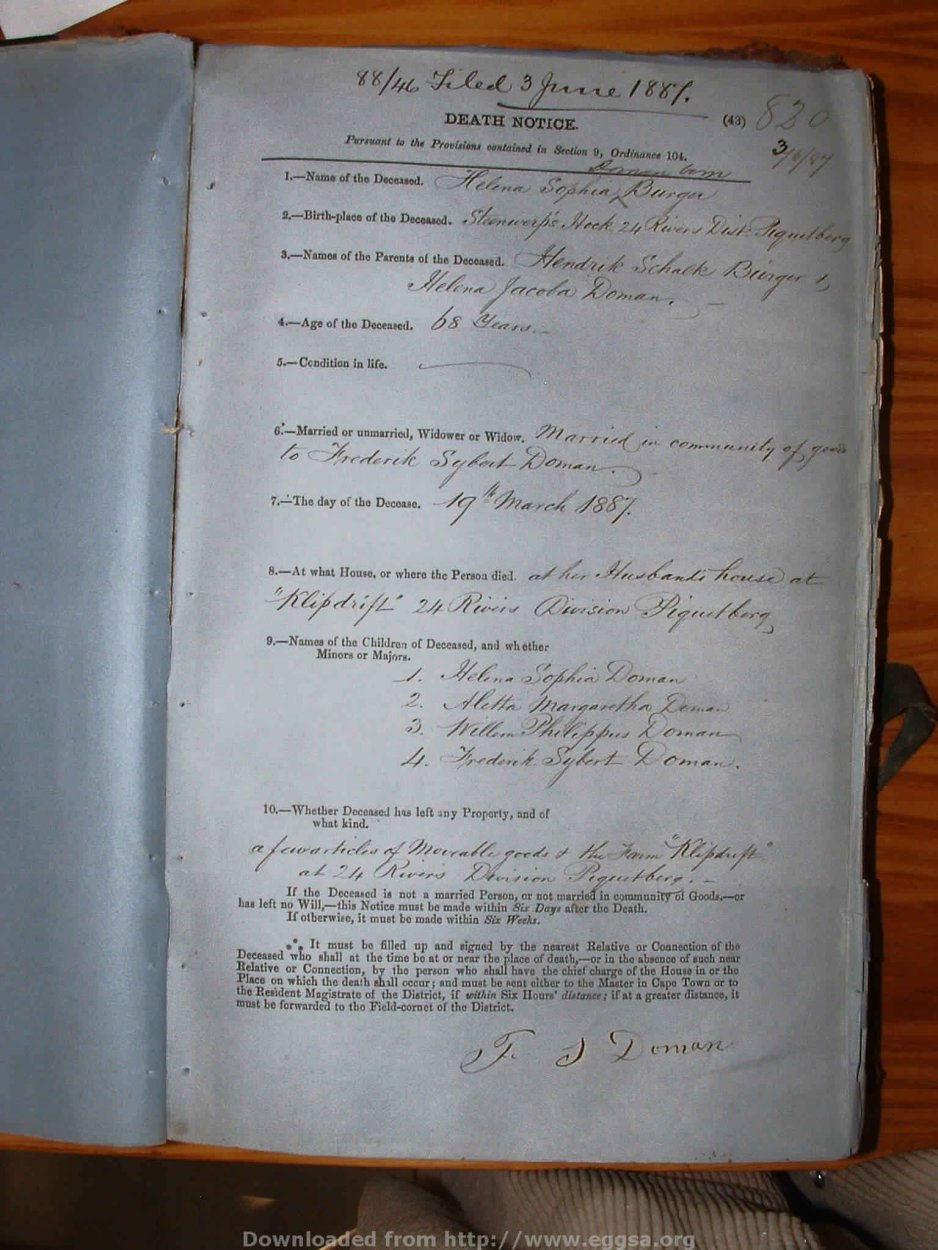 88/46 Filed 3 June 1887.
DEATH NOTICE.
(43) 820
3/6/87
Pursuant to the Provisions contained in Section 9, Ordinance 104.
Doman born
1.—Name of the Deceased. Helena Sophia Burger
2.—Birth-place of the Deceased. Steenwerp's Hoek 24 Rivers Dist Piquetberg
3.—Names of the Parents of the Deceased. Hendrik Schalk Burger &
Helena Jacoba Doman.
4.—Age of the Deceased. 68 Years.
5.—Condition in life. —
6.—Married or unmarried, Widower or Widow. Married in community of goods
to Frederik Sybert Doman.
7.—The day of the Decease. 19th March 1887.
8.—At what House, or where the Person died. at her Husband's house at
"Klipdrift" 24 Rivers Division Piquetberg
9.—Names of the Children of Deceased, and whether
Minors or Majors.
1. Helena Sophia Doman
2. Aletta Margaretha Doman
3. Willem Philippus Doman
4. Frederik Sybert Doman.
10.—Whether Deceased has left any Property, and of
what kind.
a few articles of Moveable goods & the Farm "Klipdrift"
at 24 Rivers Division Piquetberg.—
If the Deceased is not a married Person, or not married in community of Goods,—or
has left no Will,—this Notice must be made within Six Days after the Death.
If otherwise, it must be made within Six Weeks.
*** It must be filled up and signed by the nearest Relative or Connection of the
Deceased who shall at the time be at or near the place of death,—or in the absence of such near
Relative or Connection, by the person who shall have the chief charge of the House in or the
Place on which the death shall occur; and must be sent either to the Master in Cape Town or to
the Resident Magistrate of the District, if within Six Hours' distance; if at a greater distance, it
must be forwarded to the Field-cornet of the District.
F S Doman
Downloaded from http://www.eggsa.org